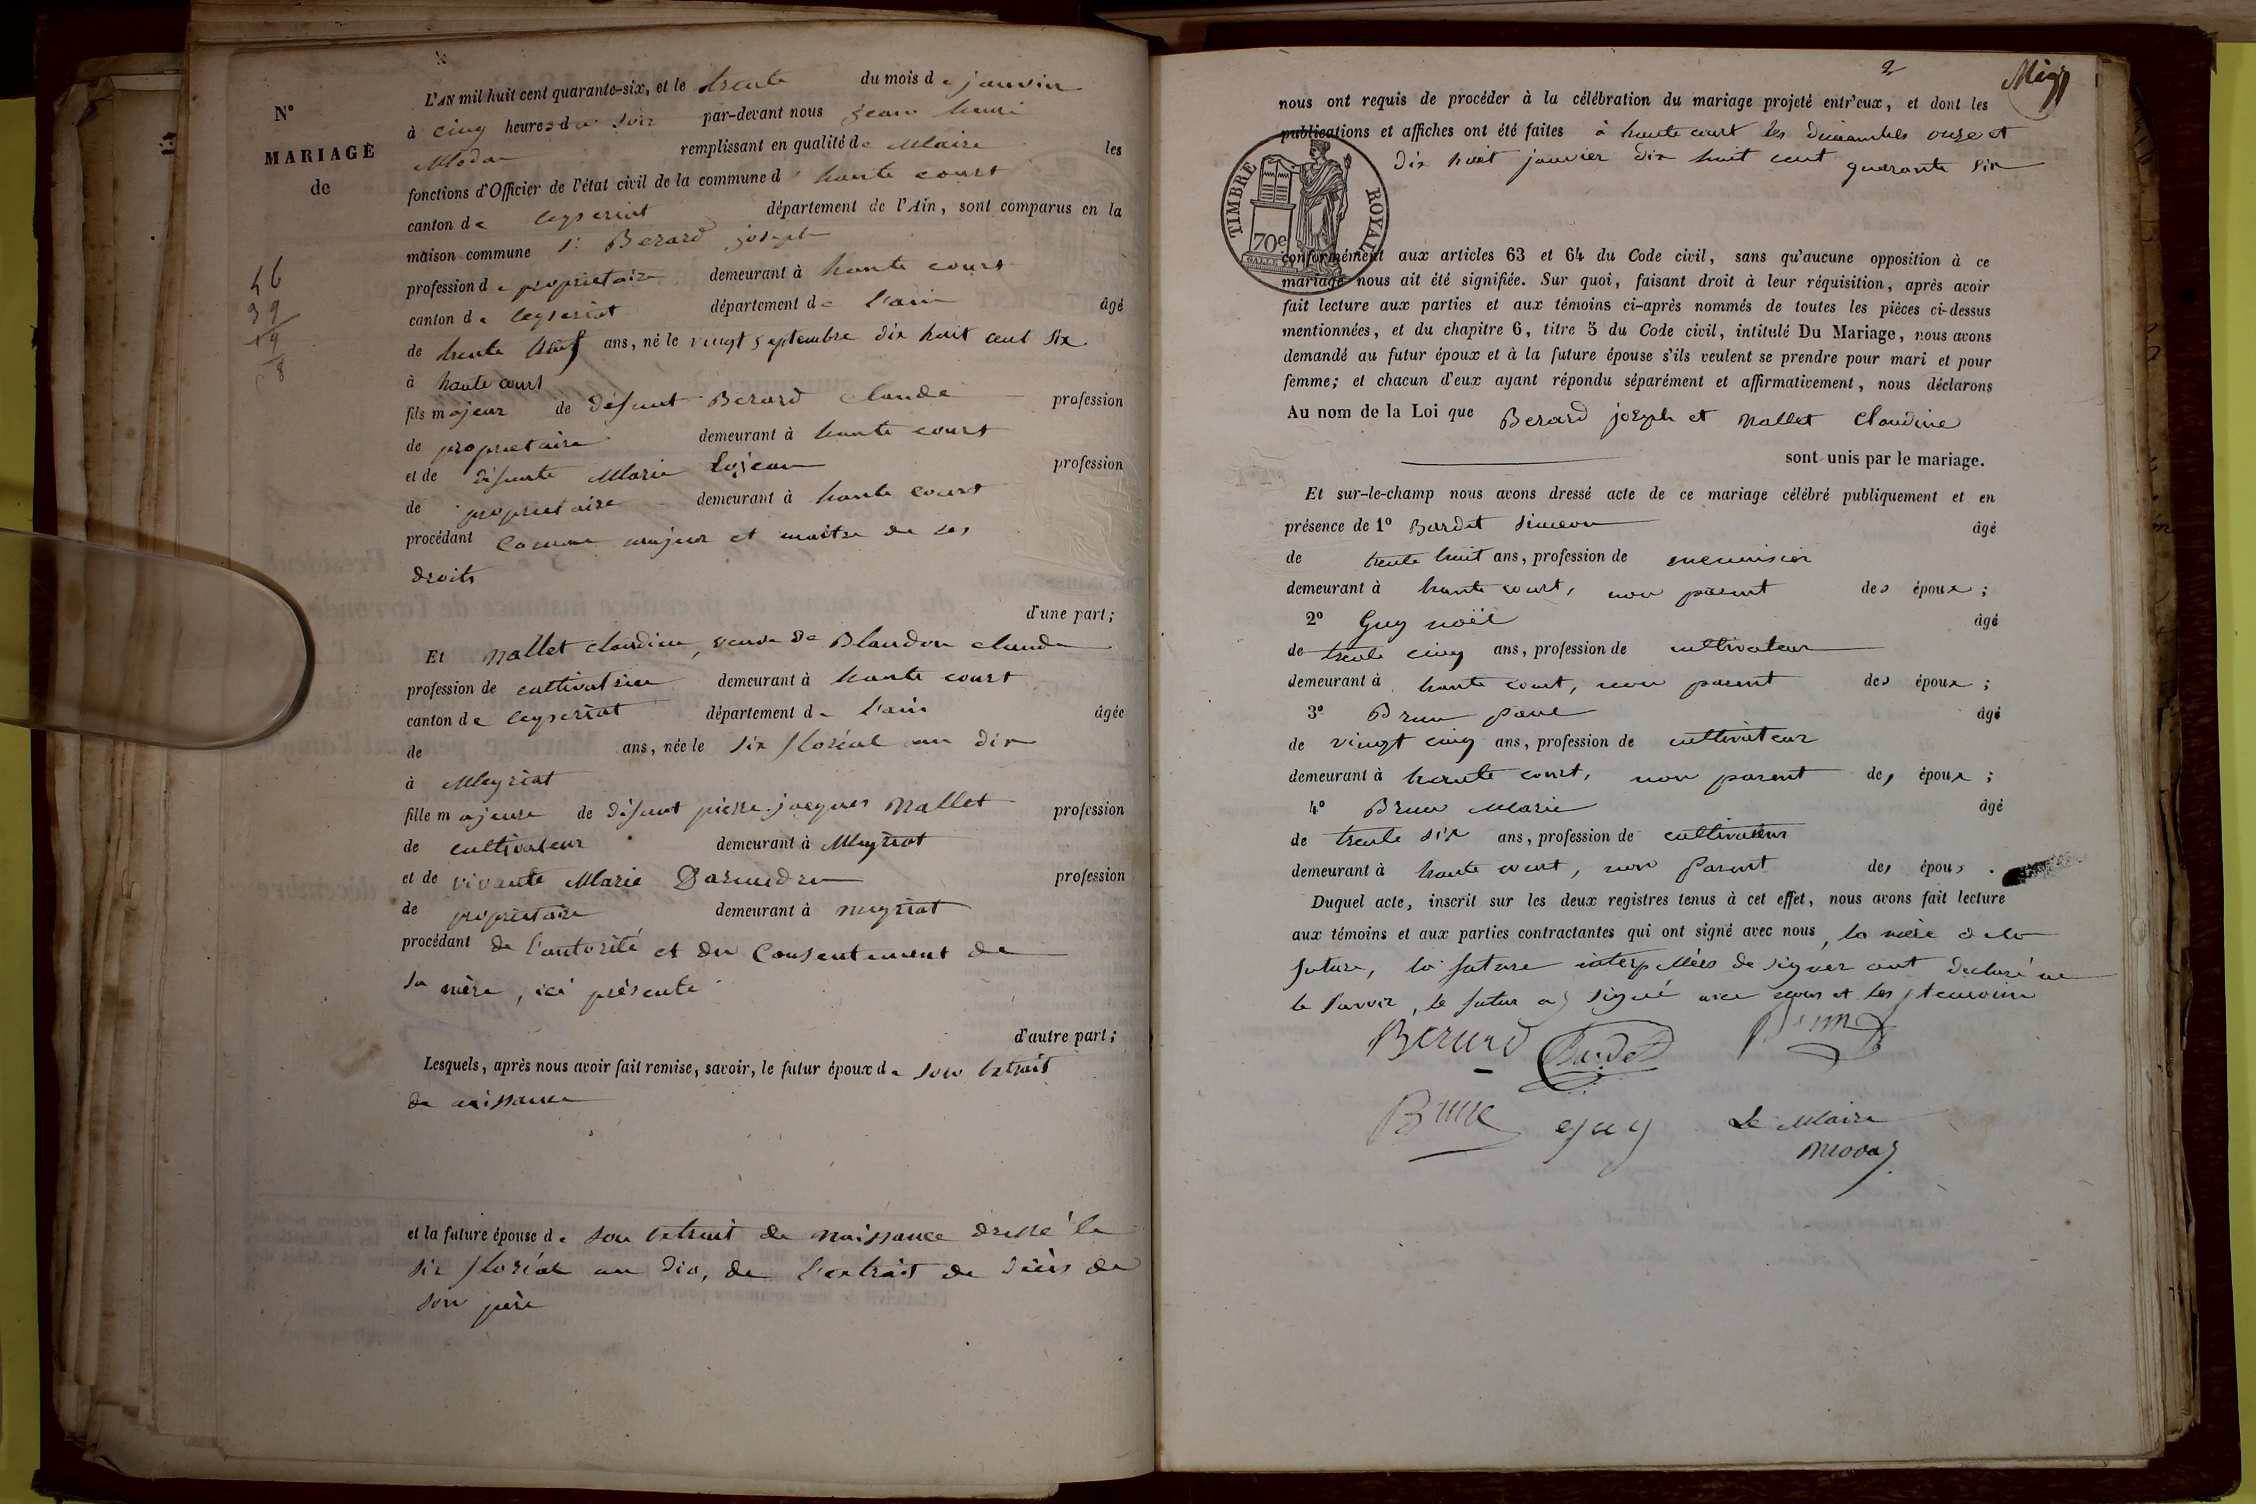 N°
MARIAGE
de
46
39
L'AN mil huit cent quarante-six, et le trente du mois de janvier
à cinq heures du soir par-devant nous jean henri
Modas remplissant en qualité de Maire les
fonctions d'Officier de l'état civil de la commune d' haute court
canton de ceyseriat département de l'Ain, sont comparus en la
maison commune Sr Berard joseph
profession de proprietaire demeurant à haute court
canton de ceyseriat département de l'ain âgé
de trente neuf ans, né le vingt septembre dix huit cent six
à haute court
fils majeur de défunt Berard Claude profession
de proprietaire demeurant à haute court
et de défunte Marie Lojean profession
de proprietaire demeurant à haute court
procédant comme majeur et maitre de ses
droits
d'une part;
Et Nallet claudine, veuve de Blandon claude
profession de cultivatrice demeurant à haute court
canton de ceyseriat département de l'ain âgée
de ans, née le six floréal an dix
à Meyriat
fille majeure de défunt pierre jacques Nallet profession
de cultivateur demeurant à Meyriat
et de vivante Marie profession
de proprietaire demeurant à meyriat
procédant de l'autorité et du Consentement de
sa mère, ici présente
d'autre part;
Lesquels, après nous avoir fait remise, savoir, le futur époux de son extrait
de naissance
et la future épouse de son extrait de naissance dressé le
six floréal an dix, de l'extrait de décès de
son père
2
nous ont requis de procéder à la célébration du mariage projeté entr'eux, et dont les
publications et affiches ont été faites à haute court les dimanches onze et
dix huit janvier dix huit cent quarante six
TIMBRE ROYAL
70c
conformément aux articles 63 et 64 du Code civil, sans qu'aucune opposition à ce
mariage nous ait été signifiée. Sur quoi, faisant droit à leur réquisition, après avoir
fait lecture aux parties et aux témoins ci-après nommés de toutes les pièces ci-dessus
mentionnées, et du chapitre 6, titre 5 du Code civil, intitulé Du Mariage, nous avons
demandé au futur époux et à la future épouse s'ils veulent se prendre pour mari et pour
femme; et chacun d'eux ayant répondu séparément et affirmativement, nous déclarons
Au nom de la Loi que Berard joseph et Nallet Claudine
sont unis par le mariage.
Et sur-le-champ nous avons dressé acte de ce mariage célébré publiquement et en
présence de 1° Bardet simeon âgé
de trente huit ans, profession de menuisier
demeurant à haute court, non parent des époux;
2° Guy noël âgé
de trente cinq ans, profession de cultivateur
demeurant à haute court, non parent des époux;
3° Brun paul âgé
de vingt cinq ans, profession de cultivateur
demeurant à haute court, non parent des époux;
4° Brun Marie âgé
de trente six ans, profession de cultivateur
demeurant à haute court, non parent des époux.
Duquel acte, inscrit sur les deux registres tenus à cet effet, nous avons fait lecture
aux témoins et aux parties contractantes qui ont signé avec nous, la mère de la
future, la future interpellées de signer ont declaré ne
le savoir, le futur a signé avec nous et les témoins
Berard Bardet Brun
Brun guy Le Maire
Modas